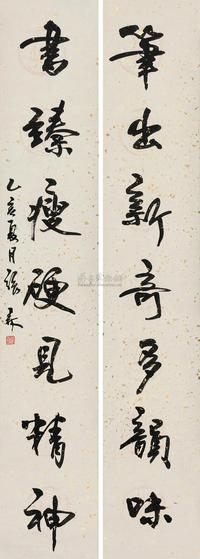 筆出新奇多韻味
書臻瘦硬見精神
乙亥夏月張森